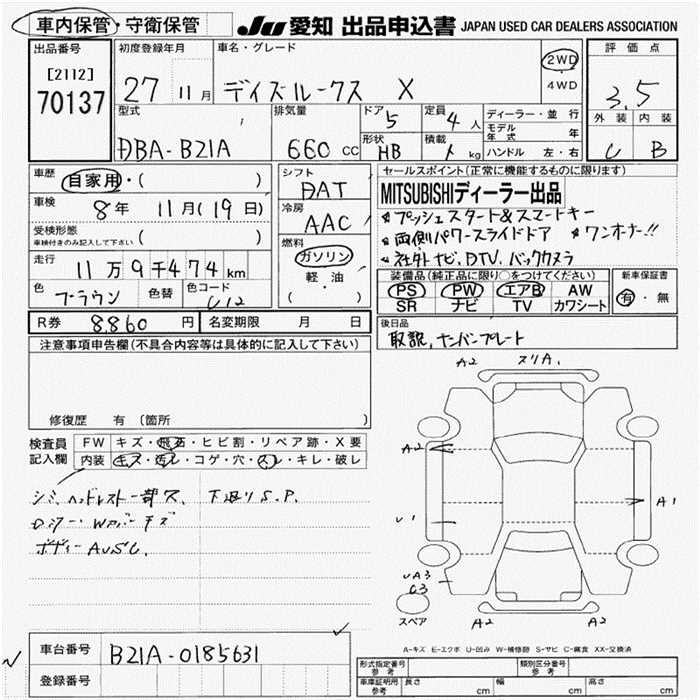 車内保管・守衛保管 JU 愛知 出品申込書 JAPAN USED CAR DEALERS ASSOCIATION
出品番号 初度登録年月 車名・グレード 評価点
[2112] 70137 27 11月 デイズルークス X 2WD・4WD 3.5
型式 排気量 ドア 5 定員 4人 ディーラー・並行 外装 内装
DBA-B21A 660 CC 形状 HB 積載 kg モデル年式 年 C B
ハンドル 左・右
車歴 自家用・( ) シフト DAT セールスポイント(正常に機能するものに限ります)
MITSUBISHIディーラー出品
車検 8年 11月(19日) 冷房 AAC プッシュスタート&スマートキー
受検形態 車検付きのみ記入して下さい ( ) 両側パワースライドドア ワンオーナー!!
燃料 ガソリン・軽・油 ( ) 社外ナビ、DTV、バックカメラ
走行 11万9千474km
装備品(純正品に限り○をつけてください) 新車保証書
色 ブラウン 色替 色コード PS PW エアB AW 有・無
SR ナビ TV カワシート
R券 8,860円 名変期限 月 日 後日品
取説,ナンバンプレート
注意事項申告欄(不具合内容等は具体的に記入して下さい)
修復歴 有 (箇所 )
検査員記入欄 FW キズ・飛石・ヒビ割・リペア跡・X要
内装 キズ・汚レ・コゲ・穴・スレ・キレ・破レ
シミ、ヘッドレスト一部欠 下廻りS.P.
ボディーAUSC.
A2 スリA1
A2
A1
U1
UA3
C3
スペア A2 A2
A-キズ E-エクボ U-凹み W-補修跡 S-サビ C-腐食 XX-交換済
車台番号 B21A-0185631
登録番号
形式指定番号 参考 類別区分番号 参考
車庫証明用 参考 長さ cm 幅 cm 高さ cm